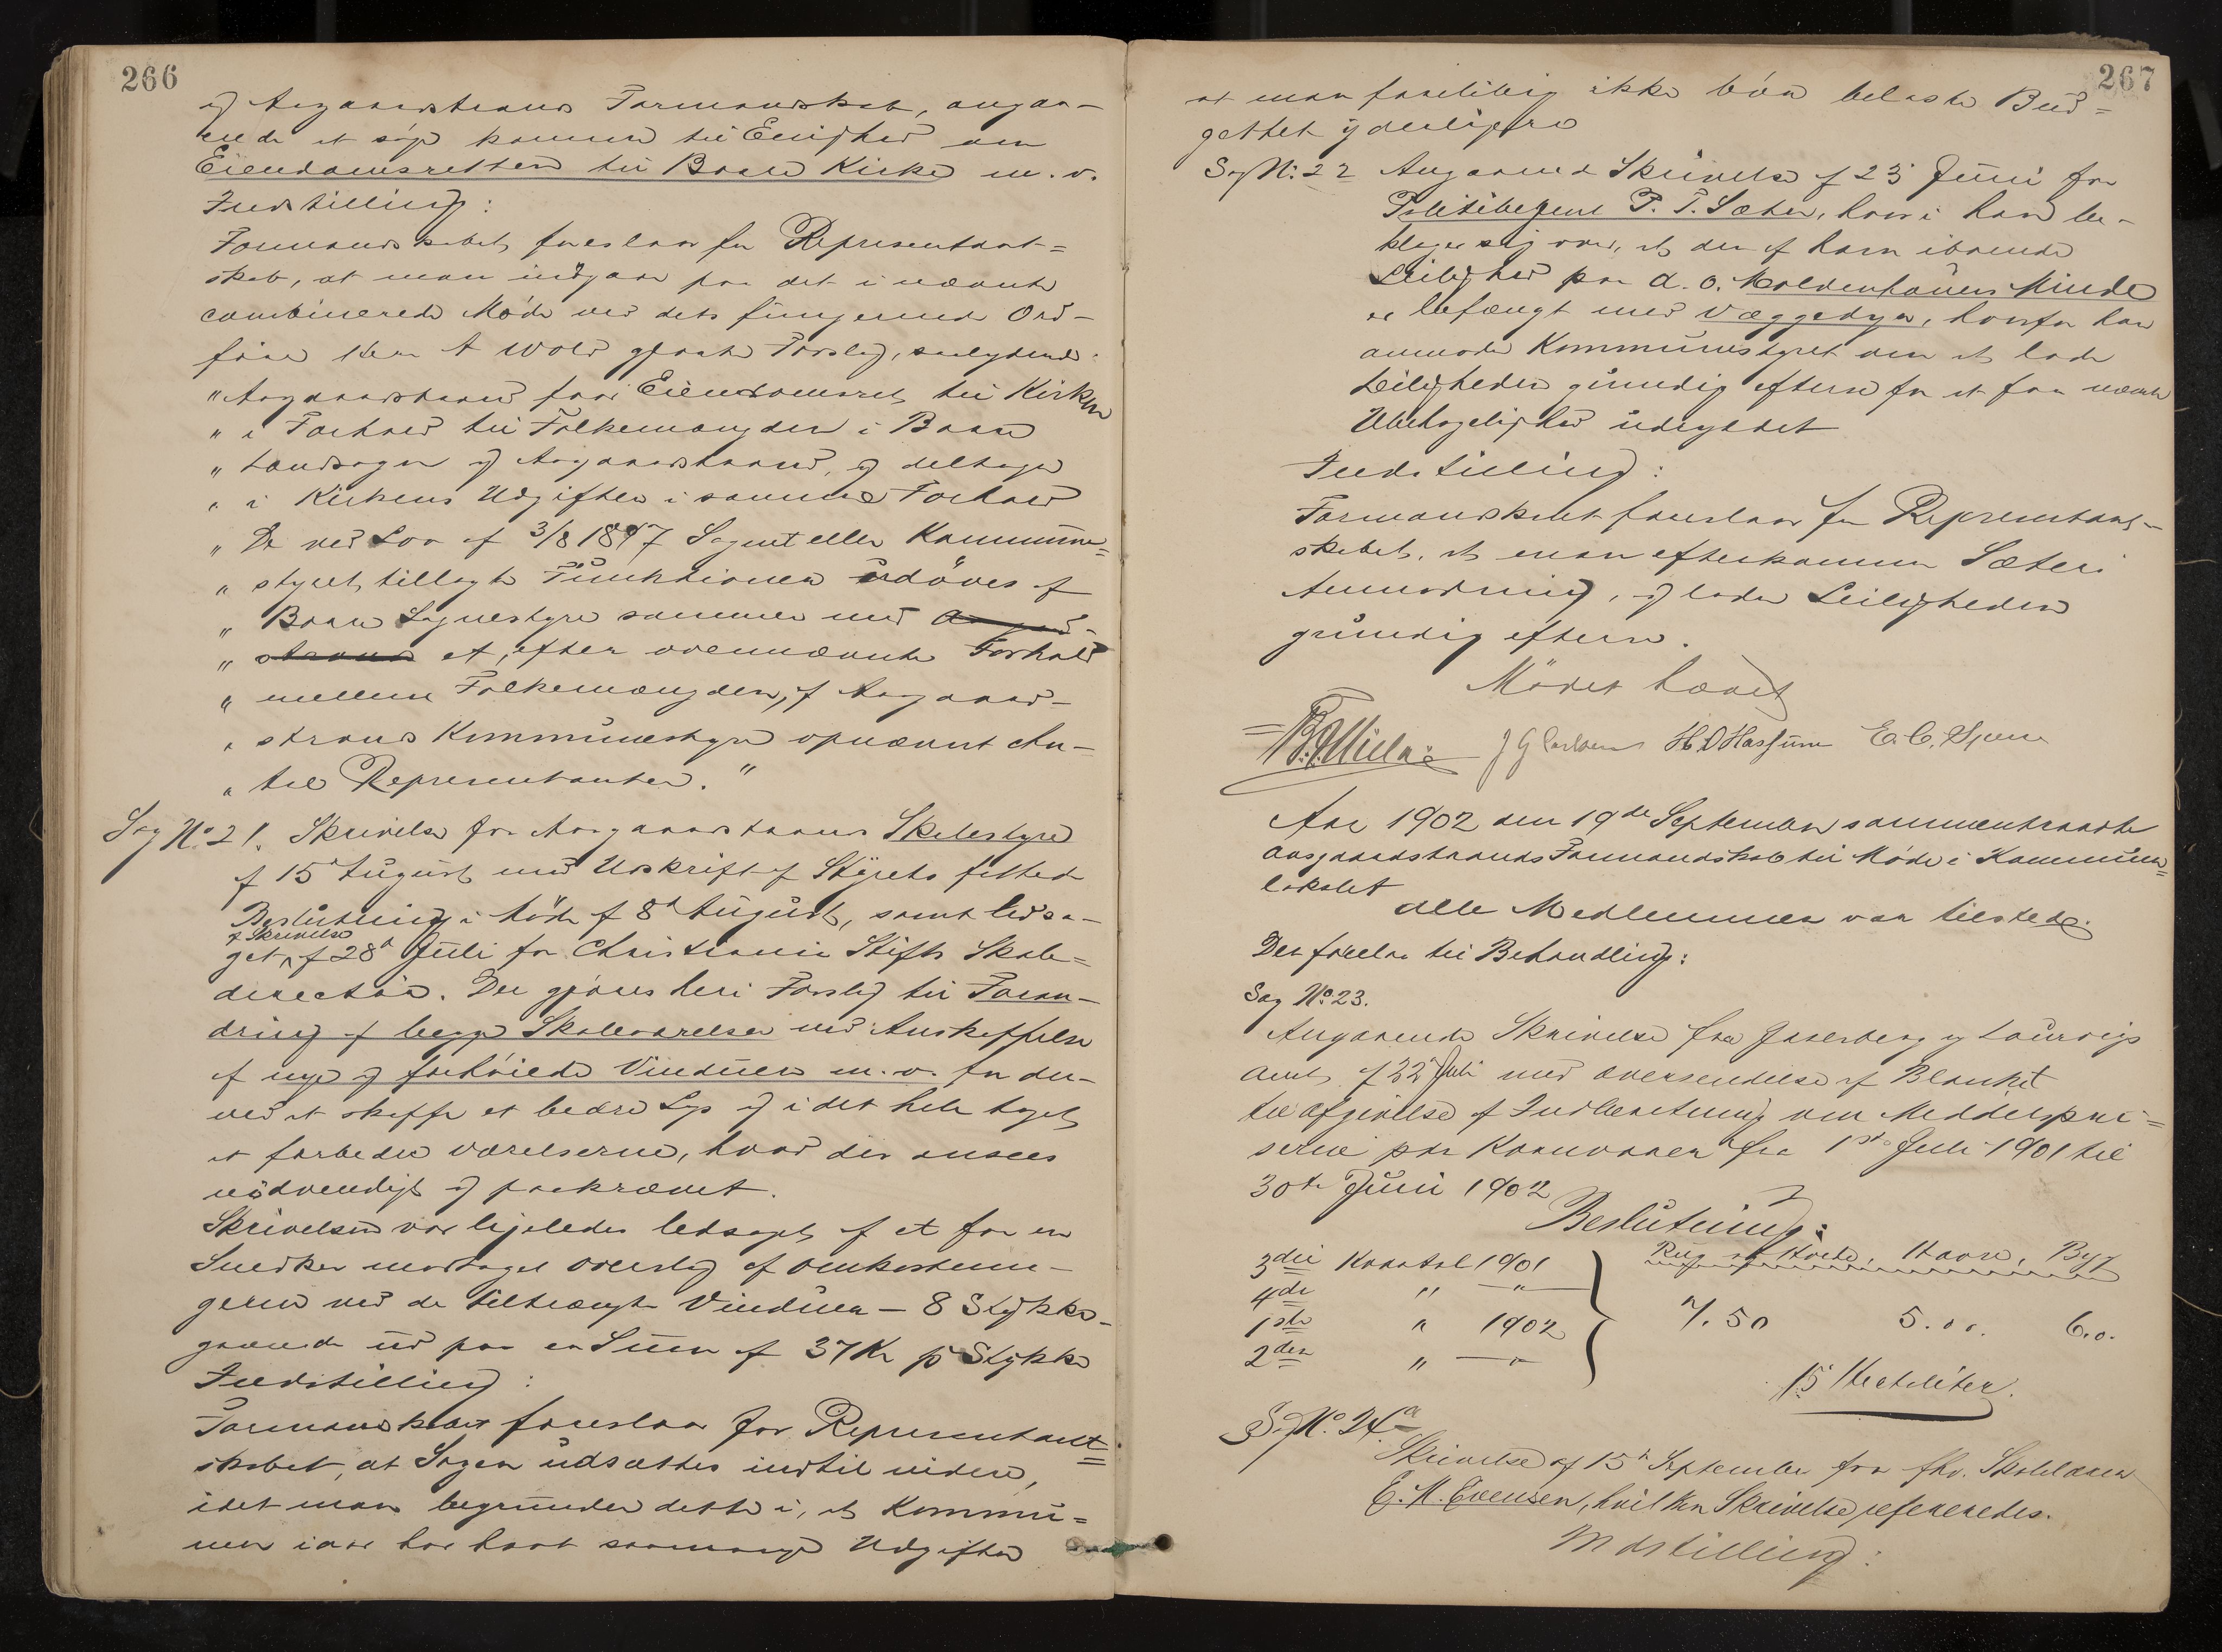 266
og Aasgaardstrands Formandskab, angaa-
ende at søge komme til Enighed om
Eiendomsretten til Borre Kirke m. v.
Indstilling:
Formandskabet foreslaar for Representant=
skab, at man indgaar paa det i nævnte
combinerede Møde ved dets fungerende Ord-
fører Herr A Wold gjorte Forslag, saalydende:
"Aasgaardstrand faar Eiendomsret til Kirken
" i Forhold til Folkemængden i Borre
" Landsogn og Aasgaardstrand, og deltager
" i Kirkens Udgifter i samme Forhold
" De ved Lov af 3/8 1897 Sognet eller Kommune=
" styret tillagte Funktioner udøves af
" Borre Sognestyre sammen med Aasgaard-
" strand et, efter ovennævnte Forhold
" mellem Folkemængden, af Aasgaard-
" strands Kommunestyre opnævnt An-
" tal Representanter."
Sag No 21. Skrivelse fra Aasgaardstrands Skolestyre
af 15 August med Udskrift af Styrets fattede
Beslutning i Møde af 8d August, samt ledsa-
af Skrivelse
get af 28d Juli fra Christiania Stifts Skole=
direktør. Der gjøres heri Forslag til Foran-
dring af begge Skoleværelser ved Anskaffelse
af nye og forhøiede Vinduer m. v. for der-
ved at skaffe et bedre Lys og i det hele taget
at forbedre værelserne, hvad der ansees
nødvendigt og paakrævet.
Skrivelsen var ligeledes ledsaget af et fra en
Snedker modtaget Overslag af Omkostnin-
gerne ved de tiltrængte Vinduer – 8 Stykker-
gaaende ud paa en Sum af 37 Kr pr Stykke
Indstilling:
Formandskabet foreslaar for Representant=
skabet, at Sagen udsættes indtil videre,
idet man begrunder dette i, at Kommu=
nen iaar har havt saamange Udgifter
267
at man foreløbig ikke bør belaste Bud=
gettet yderligere
Sag No. 22 Angaaende Skrivelse af 23 Juni fra
Politibetjent P. T. Sæter, hvori han be-
klager sig over, at den af ham iboende
Leilighed paa A. O. Moldenhauers Minde
er befængt med Væggedyr, hvorfor han
anmoder Kommunestyret om at lade
Leiligheden grundig efterse for at faa nævnte
Ubehagelighed udryddet
Indstilling:
Formandskabet foreslaar for Representant-
skabet, at man efterkommer Sæters
Anmodning, og lader Leiligheden
grundig efterse.
Mødet hævet
J G Carlsen H. D Hassum E. C.
Aar 1902 den 19de September sammentraadte
Aasgaardstrands Formandskab til Møde i Kommune=
lokalet
Alle Medlemmer var tilstede.
Der forelaa til Behandling:
Sag No. 23.
Angaaende Skrivelse fra Jarlsberg og Laurvigs
Amt af 22 Juli med Oversendelse af Blanket
til Afgivelse af Indberetning om Middelpri=
serne paa Kornvarer fra 1ste Juli 1901 til
30te Juni 1902
Beslutning:
3die Kvartal 1901
Rug og Hvete, Havre, Byg
4de " – " –
1ste " 1902
7.50 5.00. 6.0.
2den " – " –
pr Hectoliter.
Sag No. 24
Skrivelse af 15d September fra fhv. Skolelærer
E. M. Evensen, hvilken Skrivelse refereredes.
Indstilling: